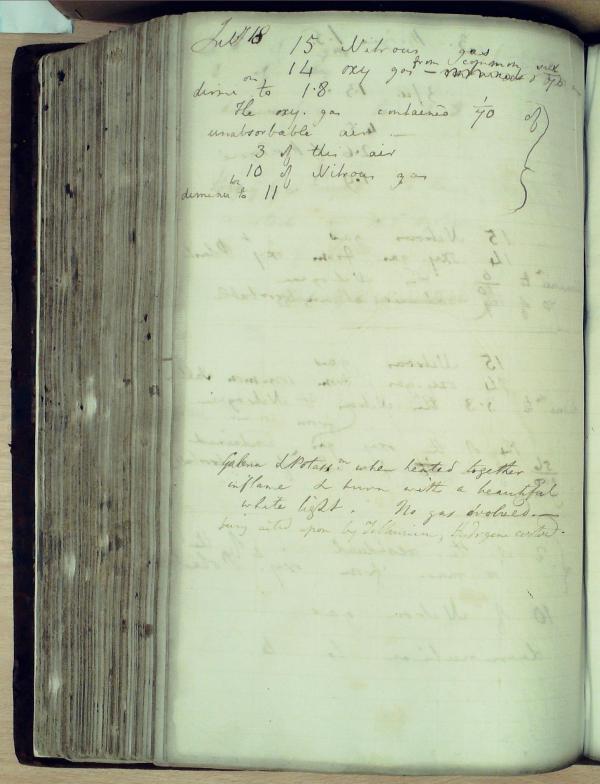 July 18
15 Nitrous gas
14 oxy gas – from common salt 1/70
dimin on to 1.8
The oxy. gas contained 1/70 of
unabsorbable air –
3 of this air
10 of Nitrous gas
diminu to 11
Galena & Potass.m when heated together
inflame & burn with a beautiful
white light. No gas evolved –
being acted upon by Hydrogene